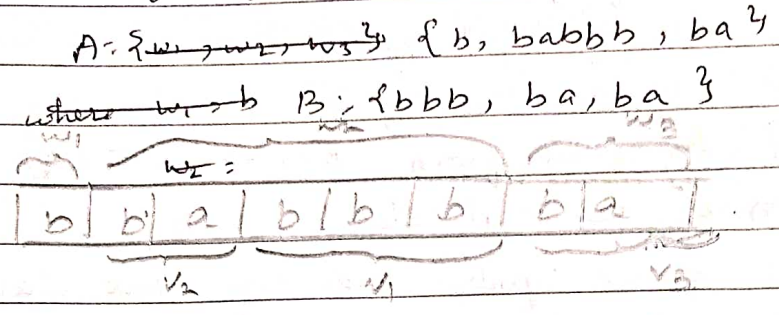 A = {w1, w2, w3} {b, babbb, ba}
where w1 = b B = {bbb, ba, ba}
w1 w2 w3
w2 =
b b a b b b b a
v2 v1 v3